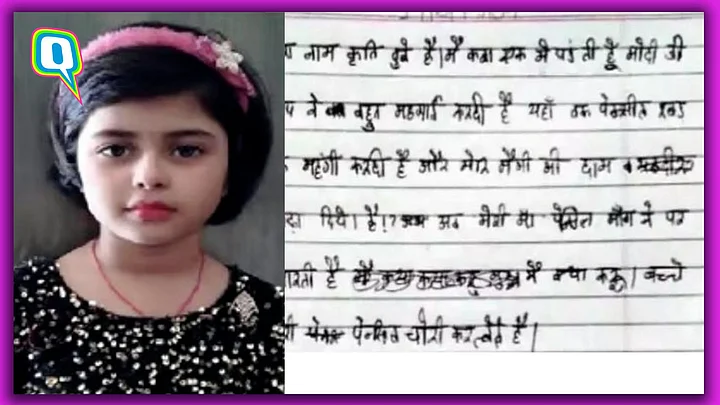 Q
नाम कृति दुबे है।मै कक्षा एक मे पडती हूँ मोदी जी
प ने बहुत महगाई करदी है यहाँ तक पेनसील रबड
महंगी करदी है और मेर मैगी की दाम
दिये। है!? अब मेरी मा पेंसिल माँगने पर
रती है मै क्या करू। बच्चे
पेनसिल चोरी करलेते है।